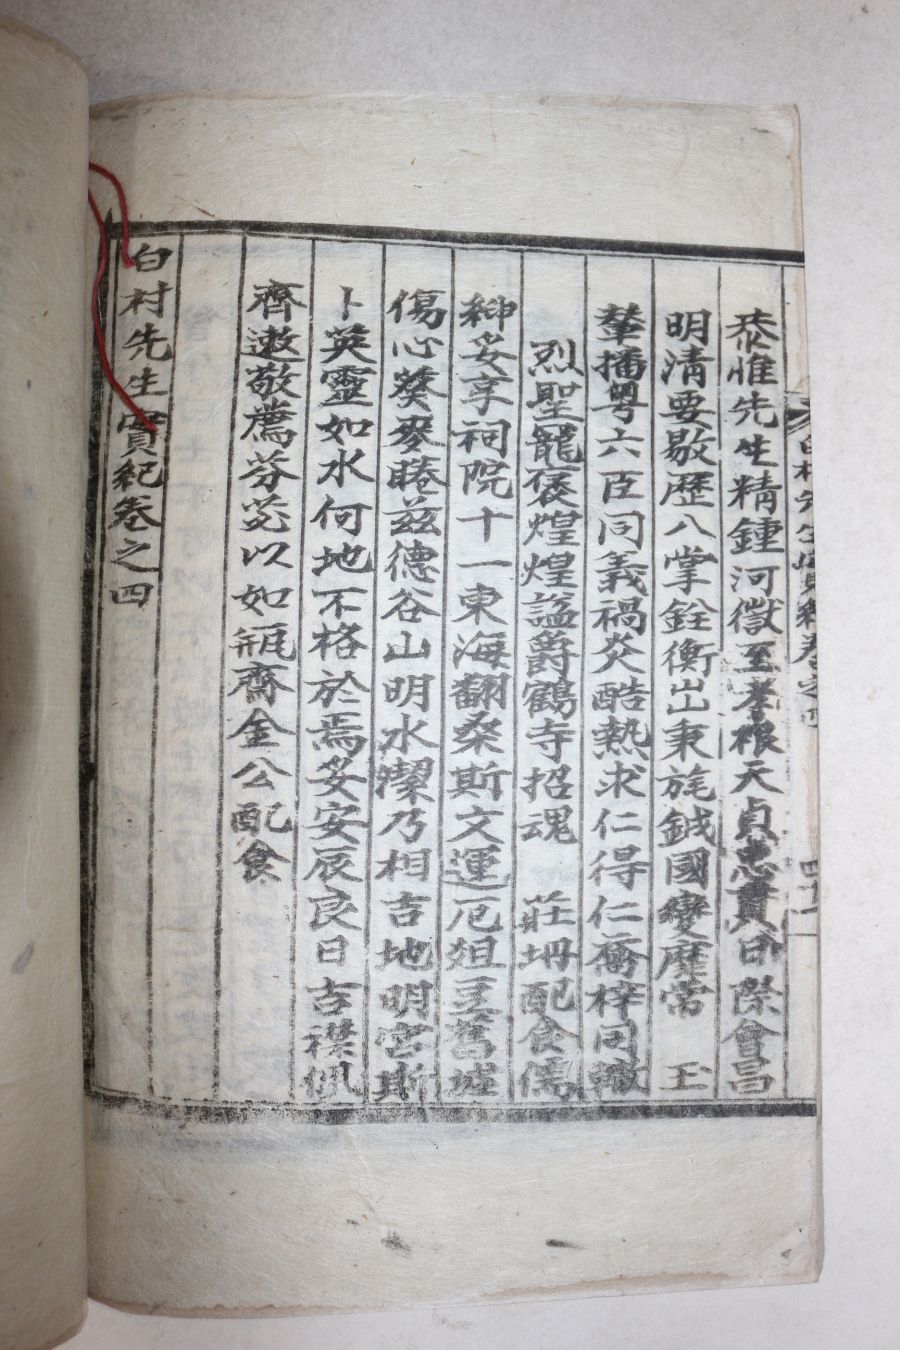 恭惟先生精鍾河嶽至孝根天貞忠貫日際會昌
明淸要敭歷八掌銓衡出秉旄鉞國變靡常　玉
輦播粵六臣同義禍炎酷熱求仁得仁喬梓同轍
烈聖寵褒煌煌諡爵鶴寺招魂　莊坍配食儒
紳妥享祠院十一東海翻桑斯文運厄俎豆舊墟
傷心葵麥睠玆德谷山明水㓗乃相吉地明宮斯
卜英靈如水何地不格於焉妥安辰良日吉襟佩
齊遬敬薦芬苾以如甁齋金公配食
白村先生實紀卷之四